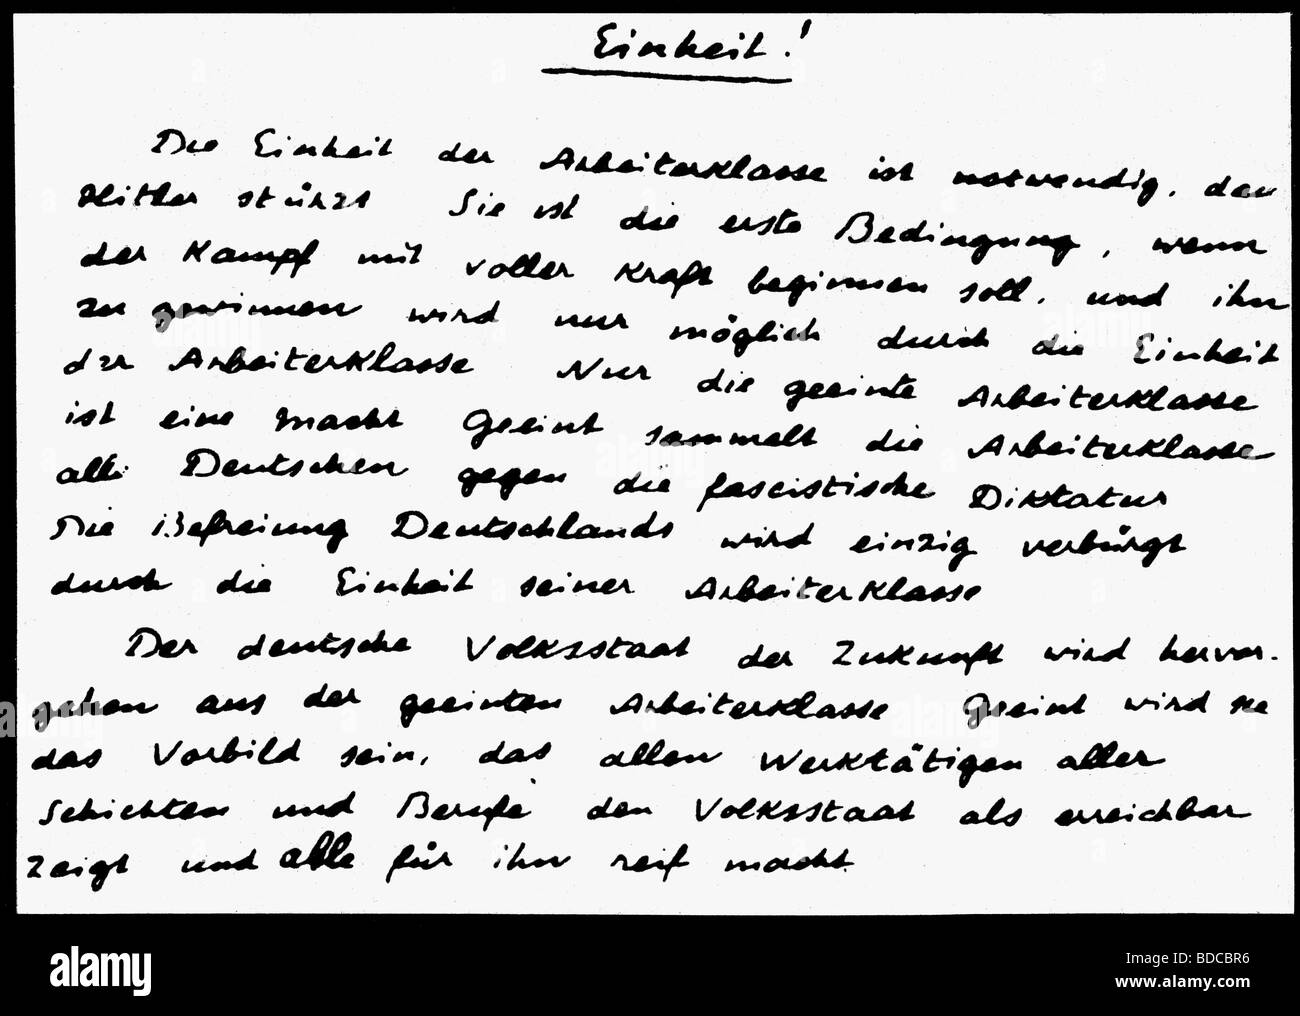 Einheit!
Die Einheit der Arbeiterklasse ist notwendig, der
Hitler stürzt Sie ist die erste Bedingung, wenn
der Kampf mit voller Kraft beginnen soll, und ihn
zu gewinnen wird nur möglich durch die Einheit
der Arbeiterklasse Nur die geeinte Arbeiterklasse
ist eine Macht Geeint sammelt die Arbeiterklasse
alle Deutschen gegen die fascistische Diktatur
Die Befreiung Deutschlands wird einzig verbürgt
durch die Einheit seiner Arbeiterklasse
Der deutsche Volksstaat der Zukunft wird hervor-
gehen aus der geeinten Arbeiterklasse Geeint wird sie
das Vorbild sein, das allen Werktätigen aller
Schichten und Berufe den Volksstaat als erreichbar
zeigt und alle für ihn reif macht.
alamy
Image ID: BDCBR6
www.alamy.com